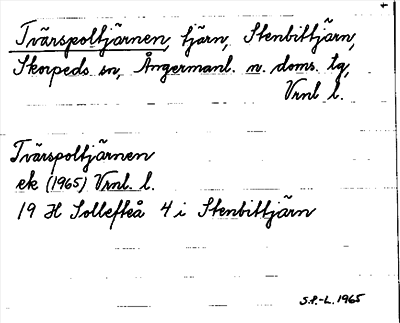 Tvärspoltjärnen, tjärn, Stenbittjärn,
Skorpeds sn, Ångermanl. n. doms. tg,
Vrnl l.
Tvärspoltjärnen
ek (1965) Vrnl. l.
19 H Sollefteå 4 i Stenbittjärn
S.P.-L. 1965